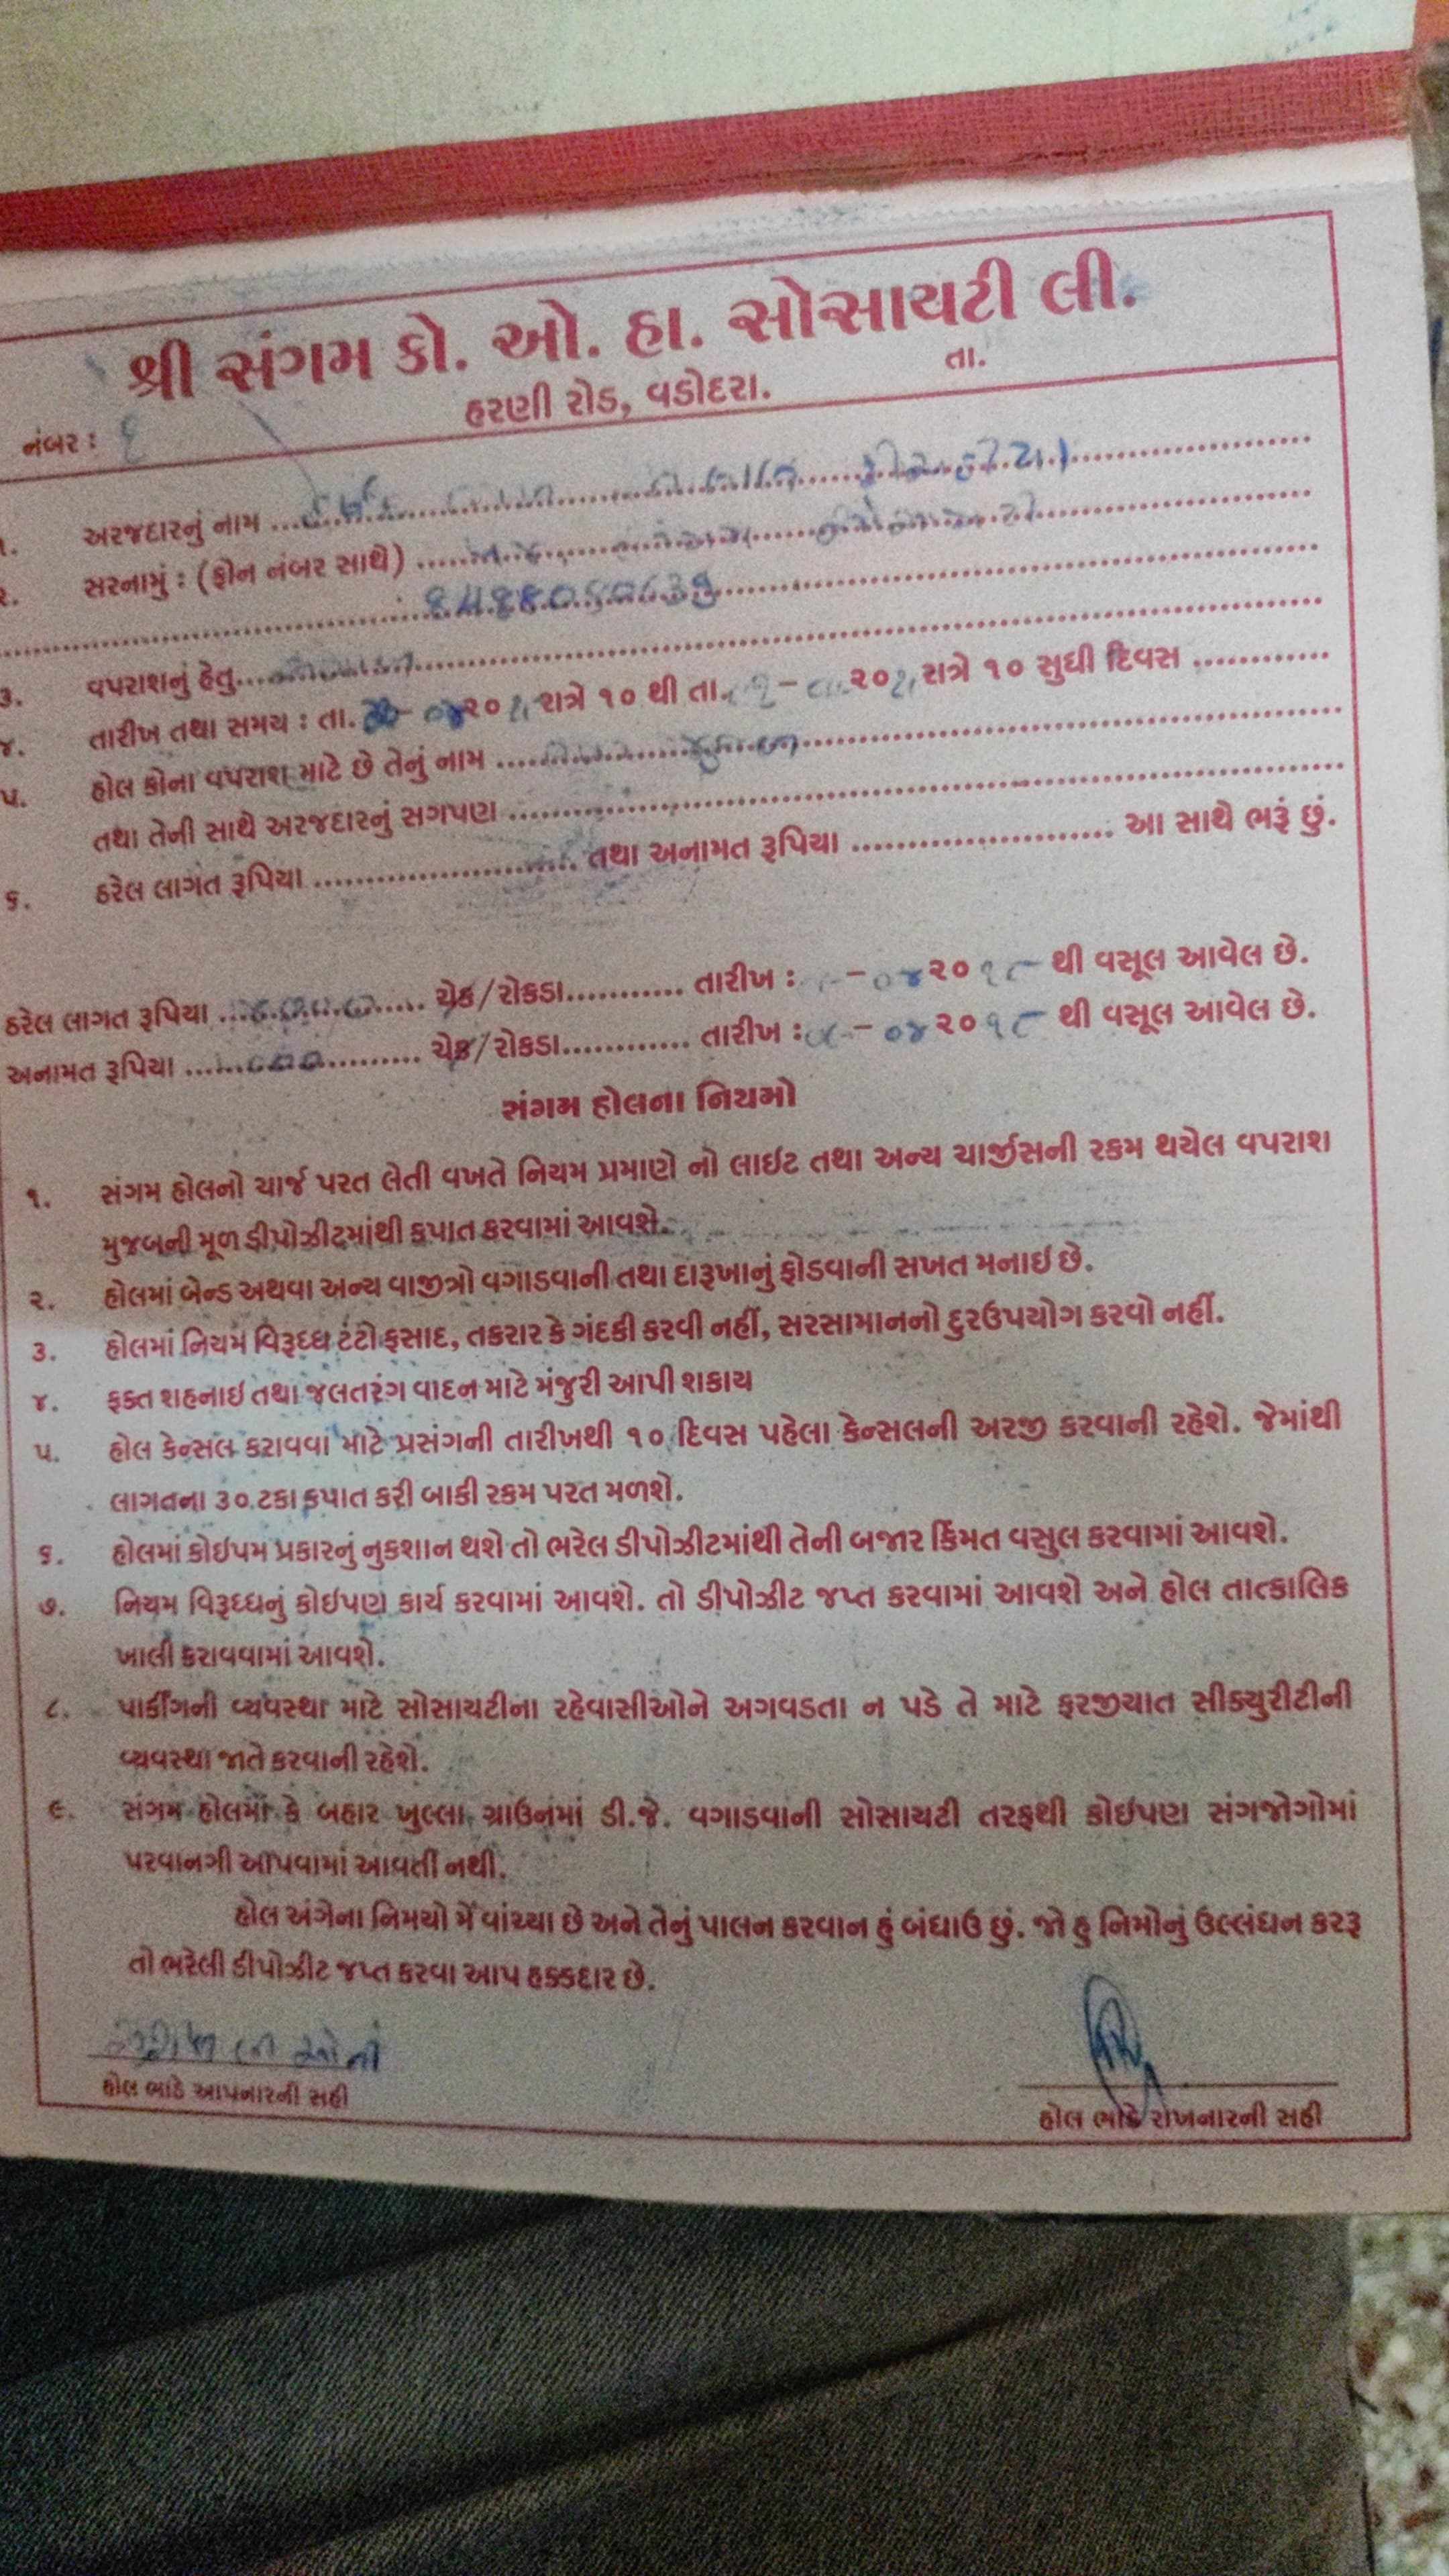 શ્રી સંગમ કો. ઓ. હા. સોસાયટી લી.
હરણી રોડ, વડોદરા.
તા.
નંબર : ૬
૧. અરજદારનું નામ ........
૨. સરનામું : (ફોન નંબર સાથે) ........
૩. વપરાશનું હેતુ........
૪. તારીખ તથા સમય : તા. ૦૪ ૨૦ રાત્રે ૧૦ થી તા. - ૨૦ રાત્રે ૧૦ સુધી દિવસ ............
૫. હોલ કોના વપરાશ માટે છે તેનું નામ ........
તથા તેની સાથે અરજદારનું સગપણ ........
૬. ઠરેલ લાગત રૂપિયા ........ તથા અનામત રૂપિયા ........ આ સાથે ભરૂં છું.
ઠરેલ લાગત રૂપિયા ........ ચેક/રોકડા........... તારીખ : - ૦૪ ૨૦ ૧૮ થી વસૂલ આવેલ છે.
અનામત રૂપિયા ........ ચેક/રોકડા............ તારીખ : - ૦૪ ૨૦ ૧૮ થી વસૂલ આવેલ છે.
સંગમ હોલના નિયમો
૧. સંગમ હોલનો ચાર્જ પરત લેતી વખતે નિયમ પ્રમાણે નો લાઈટ તથા અન્ય ચાર્જીસની રકમ થયેલ વપરાશ
મુજબની મૂળ ડીપોઝીટમાંથી કપાત કરવામાં આવશે.
૨. હોલમાં બેન્ડ અથવા અન્ય વાજીત્રો વગાડવાની તથા દારૂખાનું ફોડવાની સખત મનાઈ છે.
૩. હોલમાં નિયમ વિરૂધ્ધ ટંટો ફસાદ, તકરાર કે ગંદકી કરવી નહીં, સરસામાનનો દુરઉપયોગ કરવો નહીં.
૪. ફક્ત શહનાઈ તથા જલતરંગ વાદન માટે મંજુરી આપી શકાય
૫. હોલ કેન્સલ કરાવવા માટે પ્રસંગની તારીખથી ૧૦ દિવસ પહેલા કેન્સલની અરજી કરવાની રહેશે. જેમાંથી
લાગતના ૩૦ ટકા કપાત કરી બાકી રકમ પરત મળશે.
૬. હોલમાં કોઈપમ પ્રકારનું નુકશાન થશે તો ભરેલ ડીપોઝીટમાંથી તેની બજાર કિંમત વસુલ કરવામાં આવશે.
૭. નિયમ વિરૂધ્ધનું કોઈપણ કાર્ય કરવામાં આવશે. તો ડીપોઝીટ જપ્ત કરવામાં આવશે અને હોલ તાત્કાલિક
ખાલી કરાવવામાં આવશે.
૮. પાર્કીંગની વ્યવસ્થા માટે સોસાયટીના રહેવાસીઓને અગવડતા ન પડે તે માટે ફરજીયાત સીક્યુરીટીની
વ્યવસ્થા જાતે કરવાની રહેશે.
૯. સંગમ હોલમાં કે બહાર ખુલ્લા ગ્રાઉનમાં ડી.જે. વગાડવાની સોસાયટી તરફથી કોઈપણ સંગજોગોમાં
પરવાનગી આપવામાં આવતી નથી.
હોલ અંગેના નિમયો મેં વાંચ્યા છે અને તેનું પાલન કરવાન હું બંધાઉ છું. જો હુ નિમોનું ઉલ્લંઘન કરૂ
તો ભરેલી ડીપોઝીટ જપ્ત કરવા આપ હક્કદાર છે.
હોલ ભાડે આપનારની સહી
હોલ ભાડે રાખનારની સહી